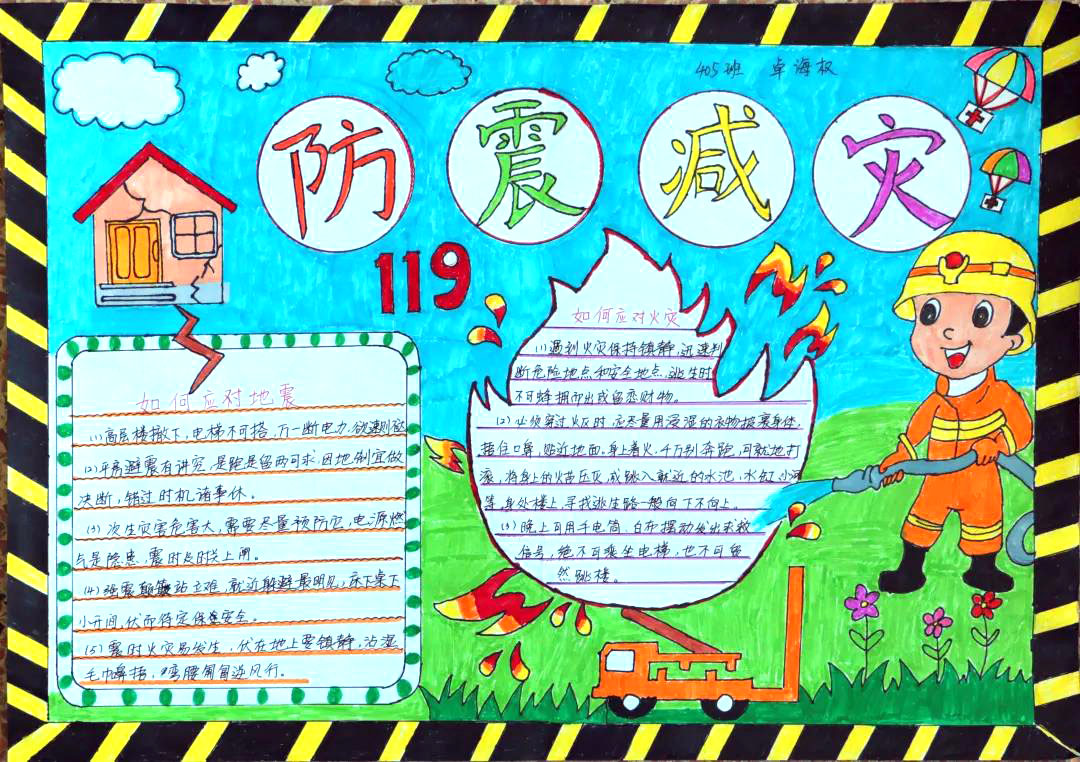 405班 卓海权
防震减灾
119
如何应对地震
(1)高层楼撤下,电梯不可搭,万一断电力,欲速则
(2)平房避震有讲究,是跑是留两可求,因地制宜做
决断,错过时机诸事休。
(3)次生灾害危害大,需要尽量预防它,电源燃
气是隐患,震时及时关上闸。
(4)强震颠簸站立难,就近躲避最明见,床下桌下
小开间,伏而待定保安全。
(5)震时火灾易发生,伏在地上要镇静,沾湿
毛巾口鼻捂,弯腰匍匐逆风行。
如何应对火灾
(1)遇到火灾保持镇静,迅速判
断危险地点和安全地点,逃生时
不可蜂拥而出或留恋财物。
(2)必须穿过火区时,应尽量用浸湿的衣物披裹身体,
捂住口鼻,贴近地面,身上着火,千万别奔跑,可就地打
滚,将身上的火苗压灭,或跳入就近的水池,水缸,小河
等,身处楼上,寻找逃生路一般向下不向上。
(3)晚上可用手电筒、白布摆动发出求救
信号,绝不可乘坐电梯,也不可
然跳楼。